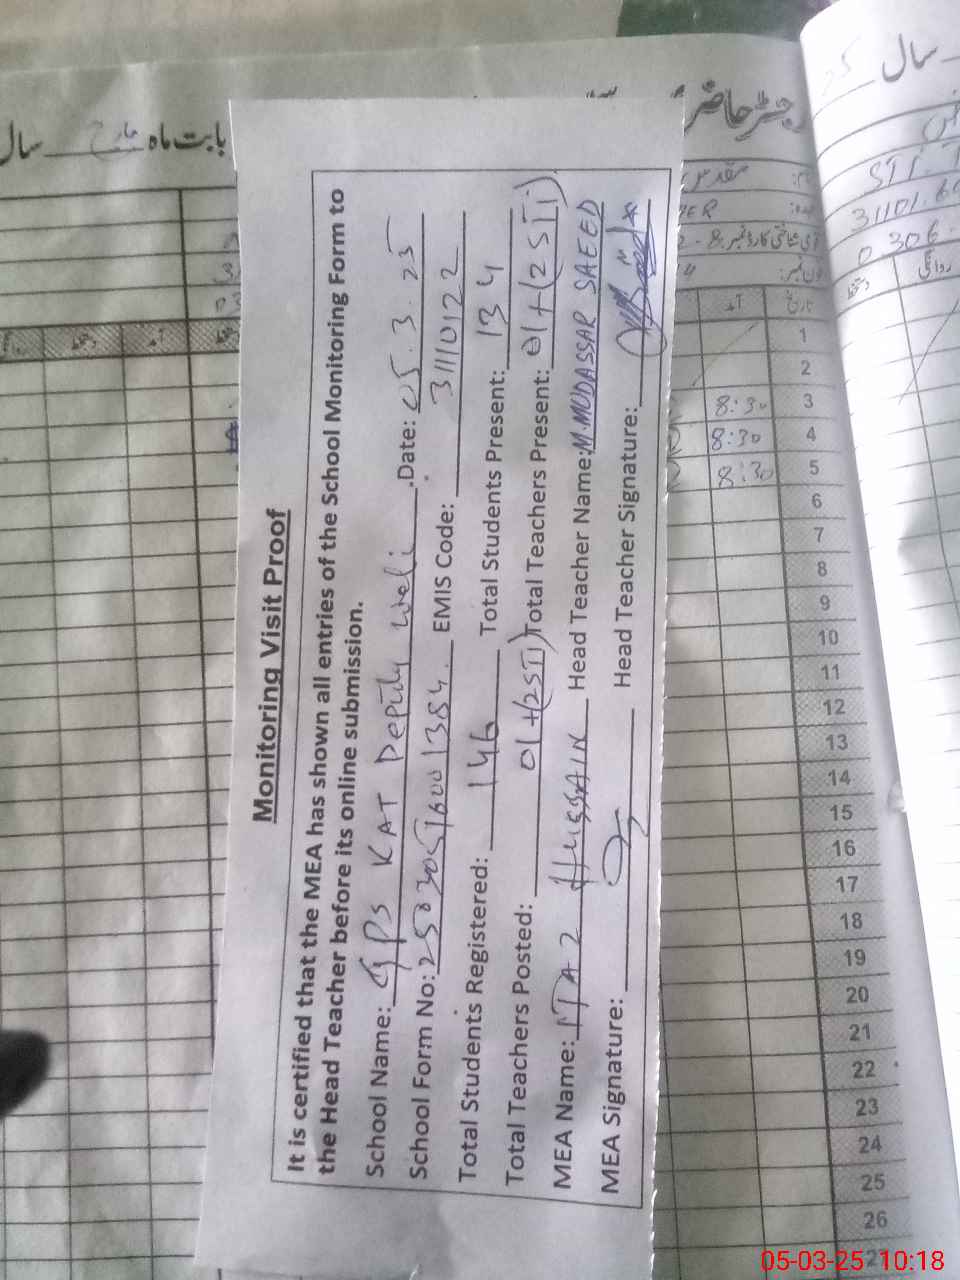 Monitoring Visit Proof
It is certified that the MEA has shown all entries of the School Monitoring Form to
the Head Teacher before its online submission.
School Name: GPS KAT Deputy Wali Date: 05.3.25
School Form No: 25030516001384 EMIS Code: 31110122
Total Students Registered: 146 Total Students Present: 134
Total Teachers Posted: 01+(2STI) Total Teachers Present: 01+(2STI)
MEA Name: HUSSAIN Head Teacher Name: M.MUDASSAR SAEED
MEA Signature: Head Teacher Signature:
بابت ماہ مارچ سال
سال
رجسٹر حاضری
STI
31101.
0306-
روانگی
دستخط
آمد
تاریخ
1
2
3 8:30
4 8:30
5 8:30
6
7
8
9
10
11
12
13
14
15
16
17
18
19
20
21
22
23
24
25
26
05-03-25 10:18